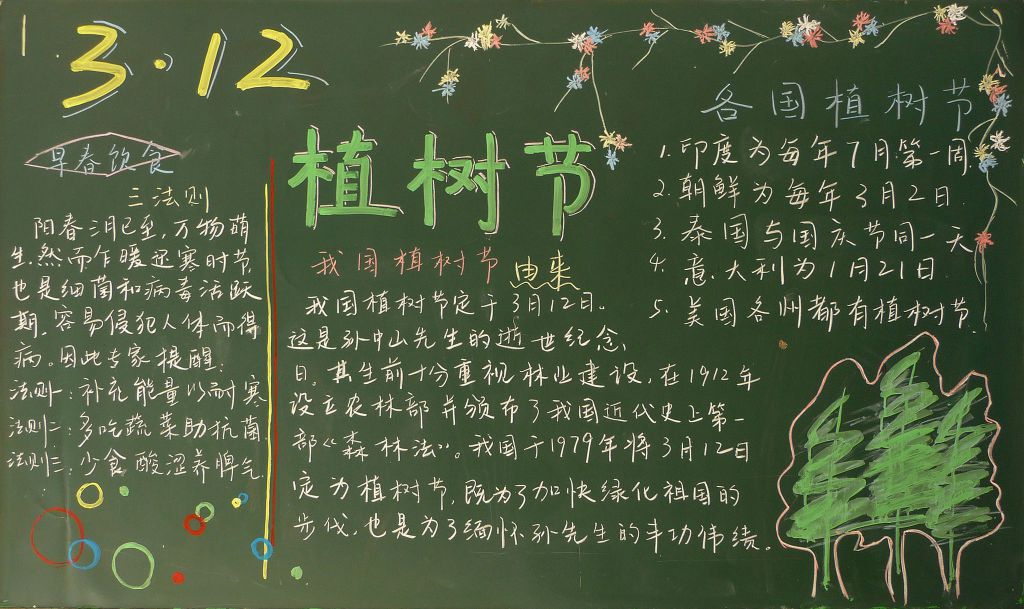 3·12
植树节
早春饮食
三法则
阳春三月已至,万物萌
生,然而乍暖还寒时节
也是细菌和病毒活跃
期,容易侵犯人体而得
病。因此专家提醒:
法则一:补充能量以耐寒
法则二:多吃蔬菜助抗菌
法则三:少食酸涩养脾气
我国植树节由来
我国植树节定于3月12日。
这是孙中山先生的逝世纪念、
日。其生前十分重视林业建设,在1912年
设立农林部并颁布了我国近代史上第一
部“森林法”。我国于1979年将3月12日
定为植树节,既为了加快绿化祖国的
步伐,也是为了缅怀孙先生的丰功伟绩。
各国植树节
1.印度为每年7月第一周
2.朝鲜为每年3月2日
3.泰国与国庆节同一天
4.意大利为1月21日
5.美国各州都有植树节